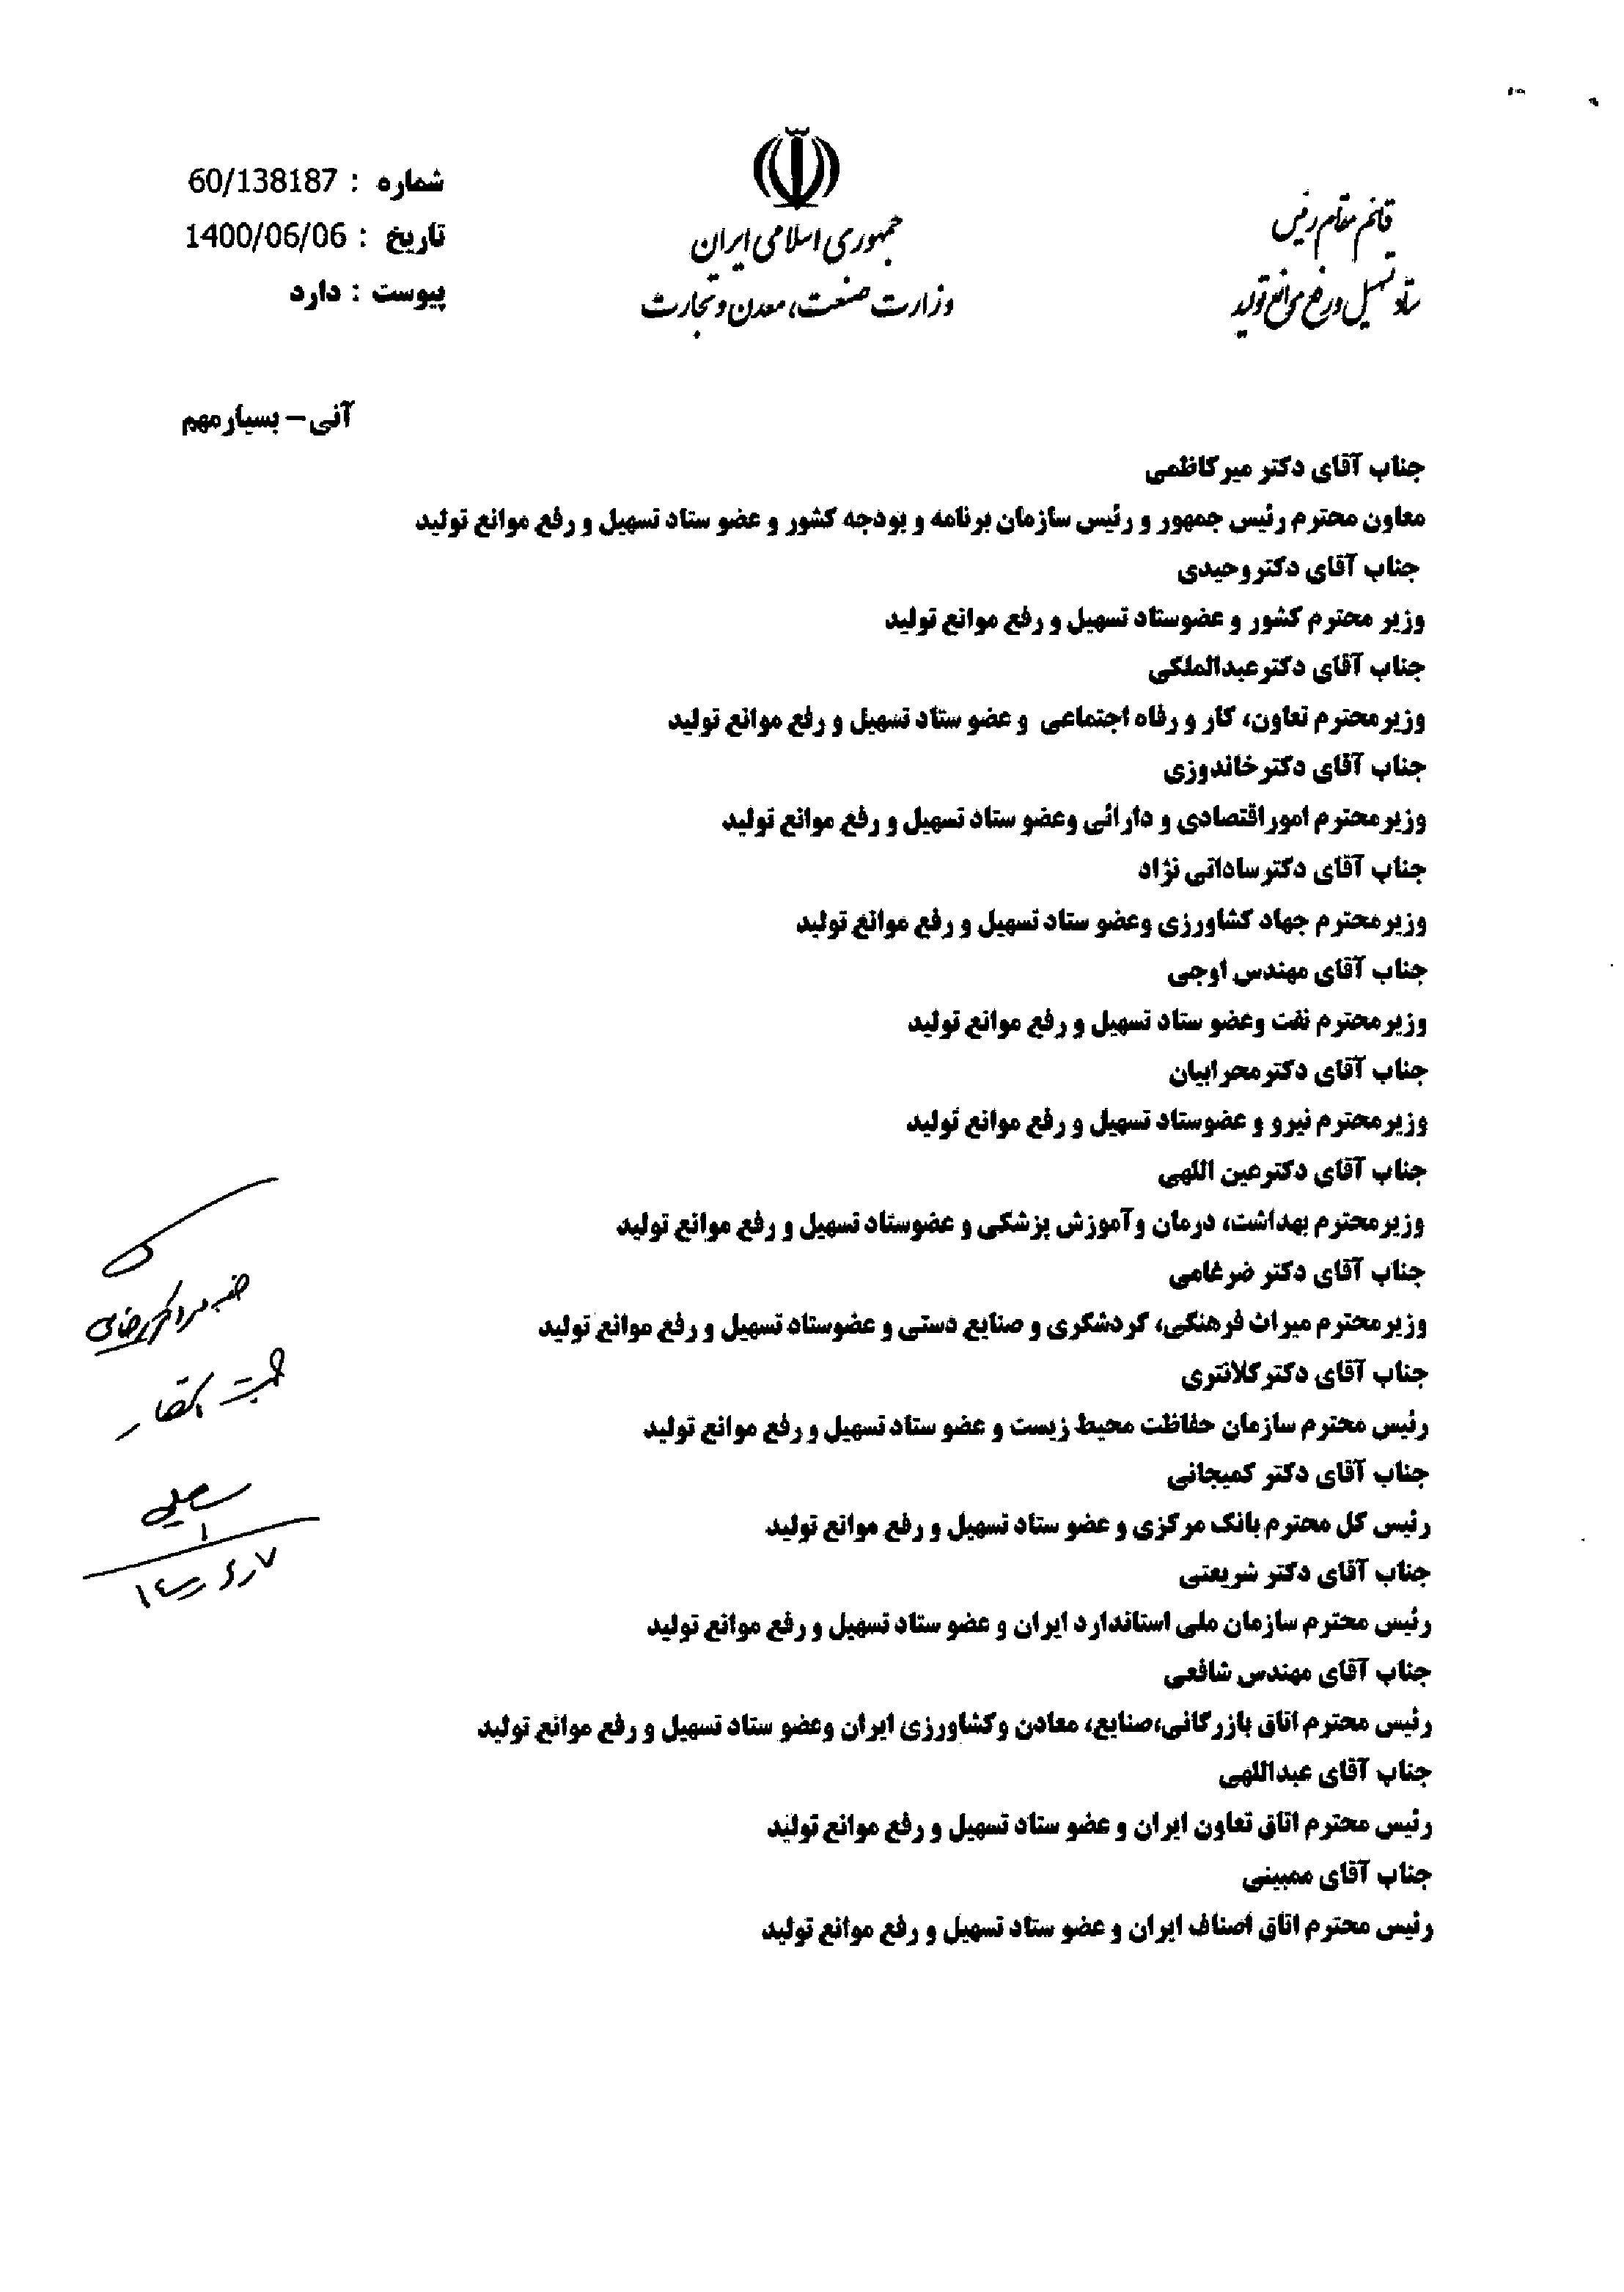 قائم مقام رئیس
ستاد تسهیل و رفع موانع تولید
جمهوری اسلامی ایران
وزارت صنعت، معدن و تجارت
شماره : 60/138187
تاریخ : 1400/06/06
پیوست : دارد
آنی – بسیار مهم
جناب آقای دکتر میرکاظمی
معاون محترم رئیس جمهور و رئیس سازمان برنامه و بودجه کشور و عضو ستاد تسهیل و رفع موانع تولید
جناب آقای دکتروحیدی
وزیر محترم کشور و عضوستاد تسهیل و رفع موانع تولید
جناب آقای دکترعبدالملکی
وزیرمحترم تعاون، کار و رفاه اجتماعی و عضو ستاد تسهیل و رفع موانع تولید
جناب آقای دکترخاندوزی
وزیرمحترم اموراقتصادی و دارائی وعضو ستاد تسهیل و رفع موانع تولید
جناب آقای دکترساداتی نژاد
وزیرمحترم جهاد کشاورزی وعضو ستاد تسهیل و رفع موانع تولید
جناب آقای مهندس اوجی
وزیرمحترم نفت وعضو ستاد تسهیل و رفع موانع تولید
جناب آقای دکترمحرابیان
وزیرمحترم نیرو و عضوستاد تسهیل و رفع موانع تولید
جناب آقای دکترعین اللهی
وزیرمحترم بهداشت، درمان وآموزش پزشکی و عضوستاد تسهیل و رفع موانع تولید
جناب آقای دکتر ضرغامی
وزیرمحترم میراث فرهنگی، گردشگری و صنایع دستی و عضوستاد تسهیل و رفع موانع تولید
جناب آقای دکترکلانتری
رئیس محترم سازمان حفاظت محیط زیست و عضو ستاد تسهیل و رفع موانع تولید
جناب آقای دکتر کمیجانی
رئیس کل محترم بانک مرکزی و عضو ستاد تسهیل و رفع موانع تولید
جناب آقای دکتر شریعتی
رئیس محترم سازمان ملی استاندارد ایران و عضو ستاد تسهیل و رفع موانع تولید
جناب آقای مهندس شافعی
رئیس محترم اتاق بازرگانی،صنایع، معادن وکشاورزی ایران وعضو ستاد تسهیل و رفع موانع تولید
جناب آقای عبداللهی
رئیس محترم اتاق تعاون ایران و عضو ستاد تسهیل و رفع موانع تولید
جناب آقای ممبینی
رئیس محترم اتاق اصناف ایران و عضو ستاد تسهیل و رفع موانع تولید